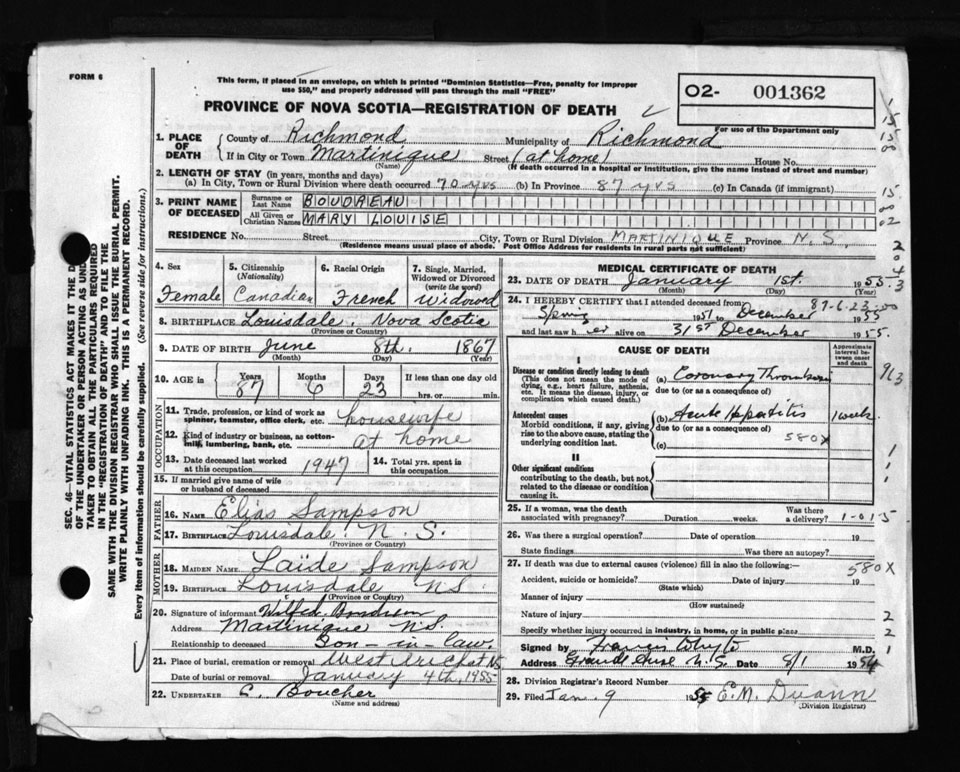 FORM 6
This form, if placed in an envelope, on which is printed "Dominion Statistics—Free, penalty for improper
use $50," and properly addressed will pass through the mail "FREE"
PROVINCE OF NOVA SCOTIA—REGISTRATION OF DEATH
O2- 001362
For use of the Department only
1. PLACE OF DEATH County of Richmond Municipality of Richmond
If in City or Town Martinique Street (at home) House No.
(Name) (If death occurred in a hospital or institution, give the name instead of street and number)
2. LENGTH OF STAY (in years, months and days)
(a) In City, Town or Rural Division where death occurred 70 yrs (b) In Province 87 yrs (c) In Canada (if immigrant)
3. PRINT NAME OF DECEASED Surname or Last Name BOUDREAU
All Given or Christian Names MARY LOUISE
RESIDENCE No. Street City, Town or Rural Division MARTINIQUE Province N.S.
(Residence means usual place of abode. Post Office Address for residents in rural parts not sufficient)
4. Sex Female
5. Citizenship (Nationality) Canadian
6. Racial Origin French
7. Single, Married, Widowed or Divorced (write the word) Widowed
8. BIRTHPLACE Louisdale, Nova Scotia
(Province or Country)
9. DATE OF BIRTH June 8th. 1867
(Month) (Day) (Year)
10. AGE in Years 87 Months 6 Days 23 If less than one day old
hrs. or min.
OCCUPATION
11. Trade, profession, or kind of work as spinner, teamster, office clerk, etc. housewife
12. Kind of industry or business, as cotton-mill, lumbering, bank, etc. at home
13. Date deceased last worked at this occupation 1947 14. Total yrs. spent in this occupation
15. If married give name of wife or husband of deceased
FATHER
16. NAME Elias Sampson
17. BIRTHPLACE Louisdale N. S.
(Province or Country)
MOTHER
18. MAIDEN NAME Laïde Sampson
19. BIRTHPLACE Louisdale N.S.
(Province or Country)
20. Signature of informant Wilfred Boudreau
Address Martinique N.S.
Relationship to deceased Son-in-law.
21. Place of burial, cremation or removal West Arichat NS
Date of burial or removal January 4th, 1955
22. UNDERTAKER C. Boucher
(Name and address)
MEDICAL CERTIFICATE OF DEATH
23. DATE OF DEATH January 1st. 1955
(Month) (Day) (Year)
87-6-23
24. I HEREBY CERTIFY that I attended deceased from
Spring 1951 to December 1955
and last saw her alive on 31st December 1955.
CAUSE OF DEATH
Approximate interval between onset and death
I
Disease or condition directly leading to death
(This does not mean the mode of dying, e.g., heart failure, asthenia, etc. It means the disease, injury, or complication which caused death.)
(a) Coronary Thrombosis
due to (or as a consequence of)
Antecedent causes
Morbid conditions, if any, giving rise to the above cause, stating the underlying condition last.
(b) Acute Hepatitis 1 week.
due to (or as a consequence of)
580X
(c)
II
Other significant conditions
contributing to the death, but not related to the disease or condition causing it.
25. If a woman, was the death associated with pregnancy? Duration weeks. Was there a delivery?
26. Was there a surgical operation? Date of operation 19
State findings Was there an autopsy?
27. If death was due to external causes (violence) fill in also the following:—
580X
Accident, suicide or homicide? Date of injury 19
(State which)
Manner of injury
(How sustained)
Nature of injury
Specify whether injury occurred in industry, in home, or in public place
Signed by Francis Whyte M.D.
Address Grande Anse N.S. Date 8/1 1954
28. Division Registrar's Record Number
29. Filed Jan. 9 1955 E.M. Duann
(Division Registrar)
SEC. 46—VITAL STATISTICS ACT MAKES IT THE
OF THE UNDERTAKER OR PERSON ACTING AS
TAKER TO OBTAIN ALL THE PARTICULARS REQUIRED
IN THE "REGISTRATION OF DEATH" AND TO FILE THE
SAME WITH THE DIVISION REGISTRAR WHO SHALL ISSUE THE BURIAL PERMIT.
WRITE PLAINLY WITH UNFADING INK. THIS IS A PERMANENT RECORD.
Every item of information should be carefully supplied. (See reverse side for instructions.)